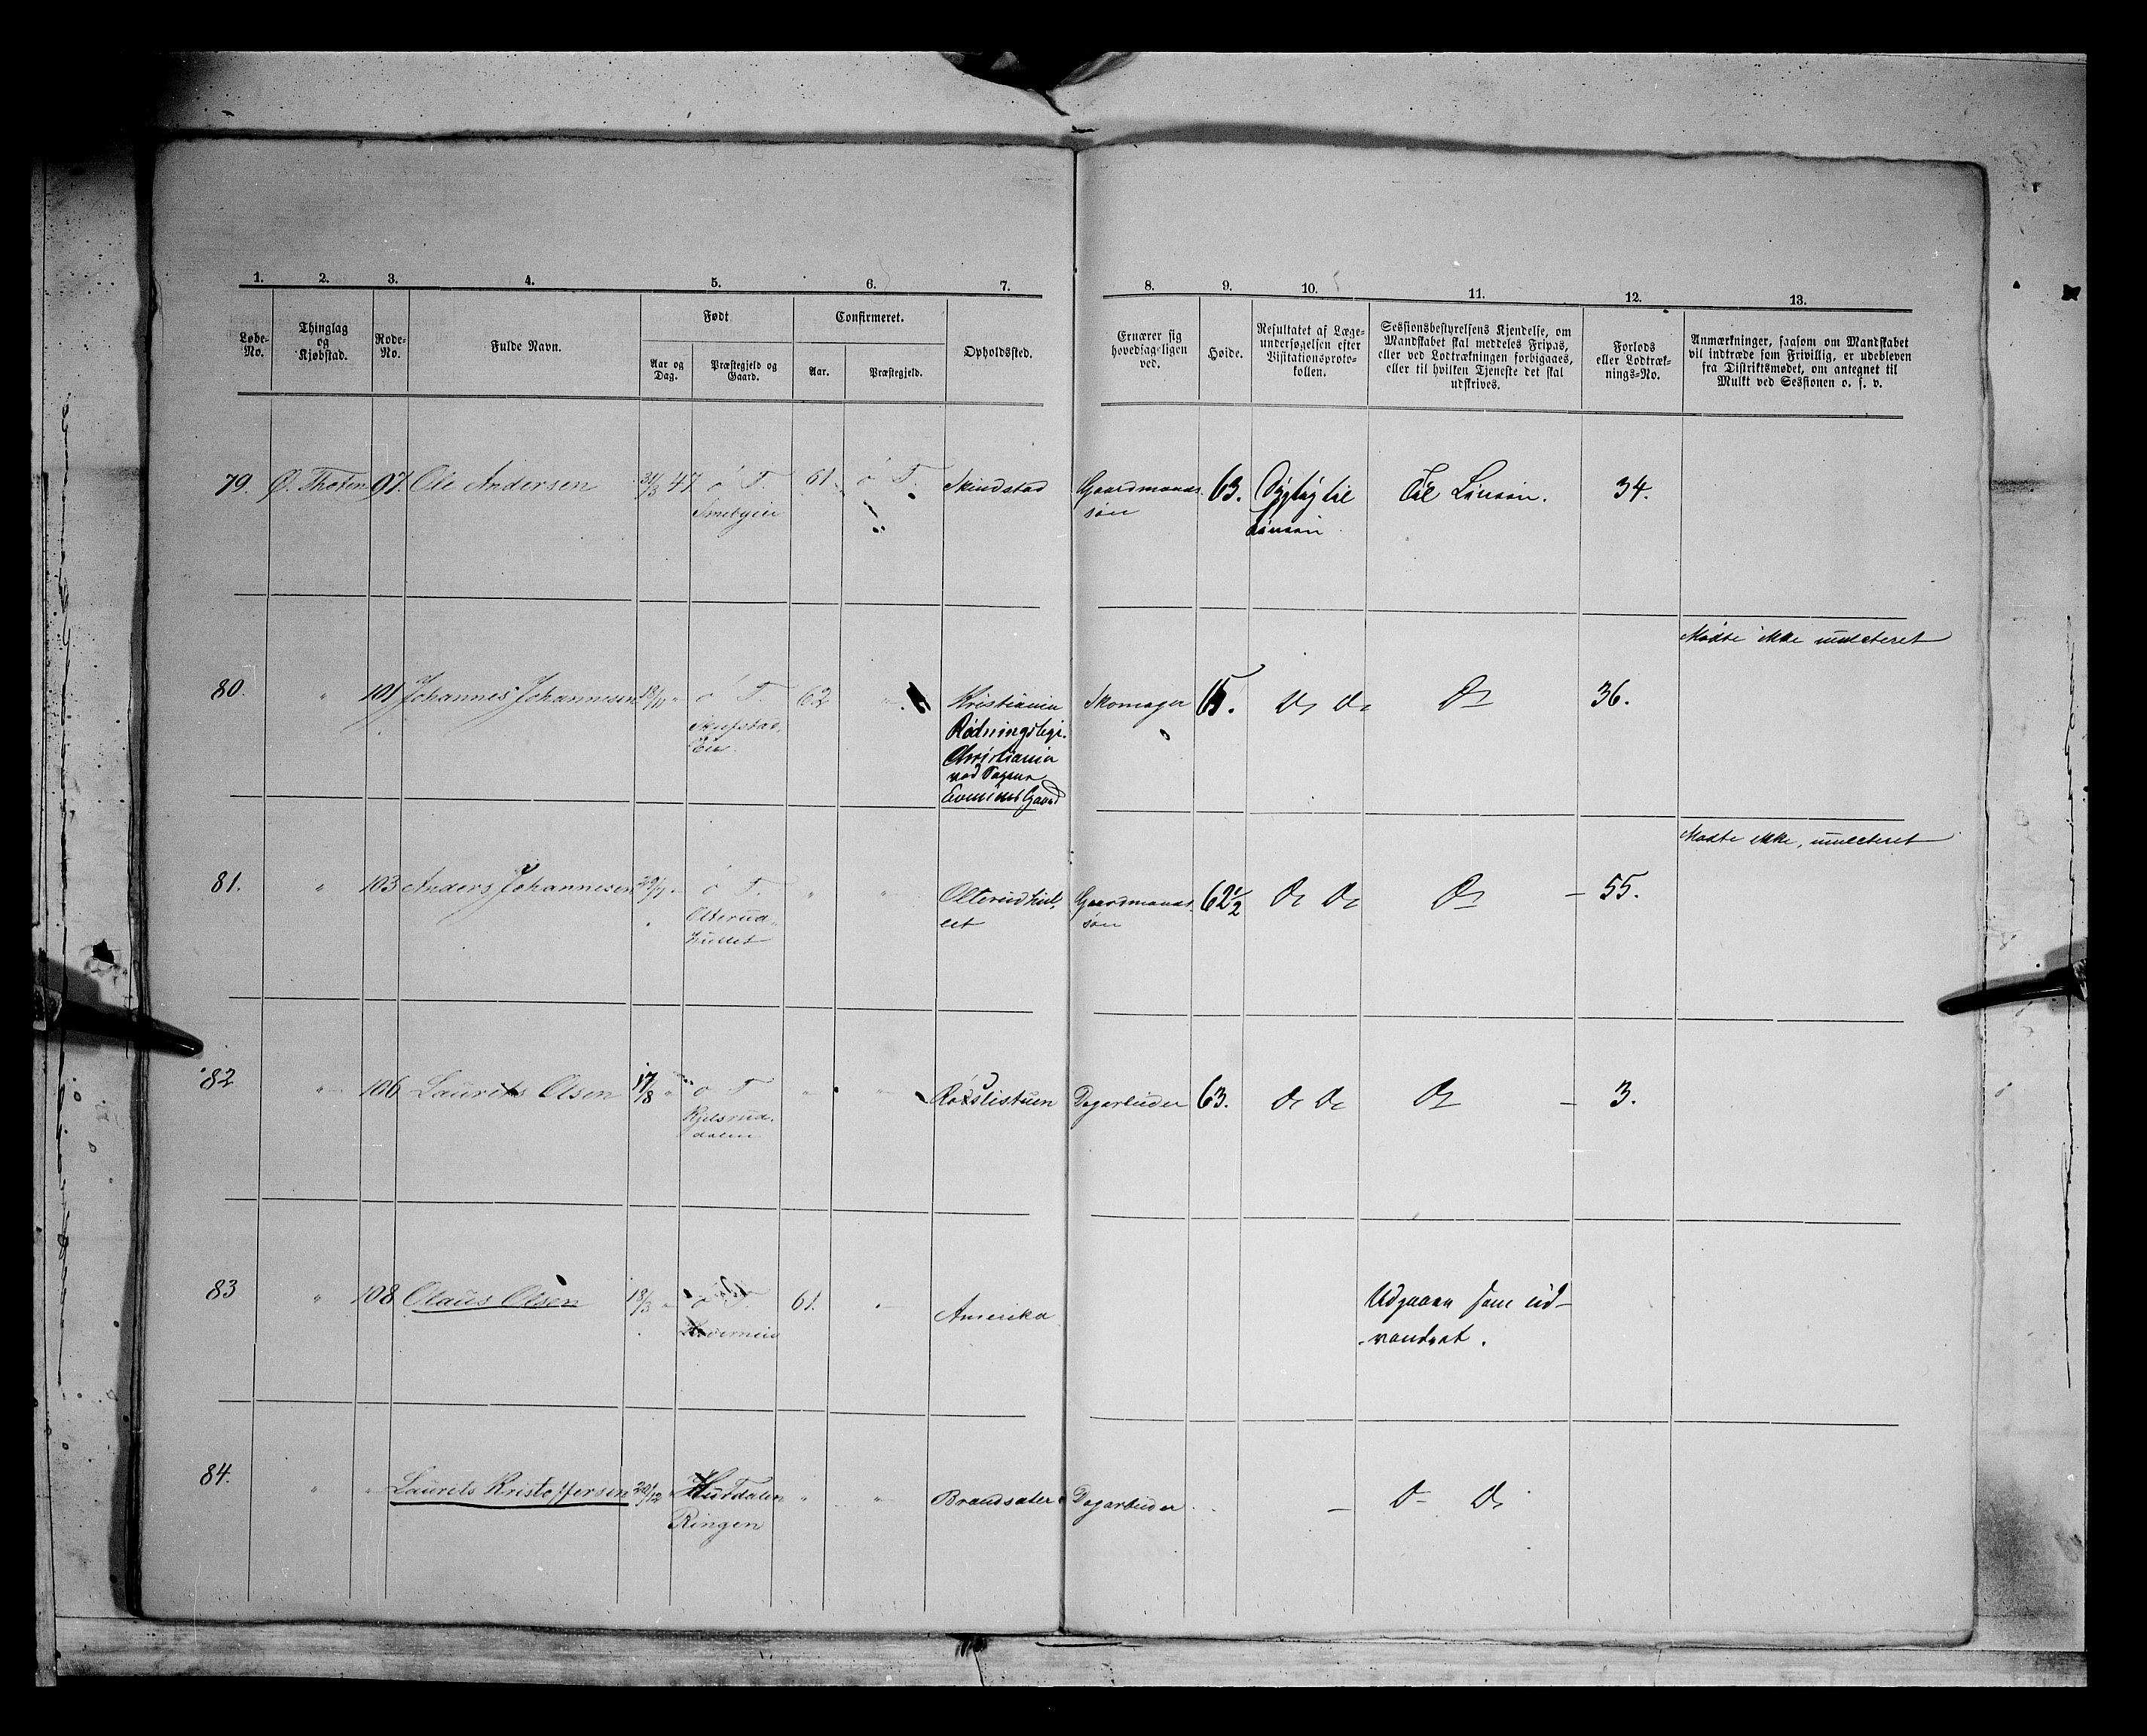 1. 2. 3. 4. 5. 6. 7. 8. 9. 10. 11. 12. 13.
Løbe-No.
Thinglag og Kjøbstad.
Rode-No.
Fulde Navn.
Født
Aar og Dag.
Præstegjeld og Gaard.
Confirmeret.
Aar.
Præstegjeld.
Opholdssted.
Ernærer sig hovedsageligen ved.
Høide.
Resultatet af Læge-undersøgelsen efter Visitationsproto-kollen.
Sessionsbestyrelsens Kjendelse, om Mandskabet skal meddeles Fripas, eller ved Lodtrækningen forbigaaes, eller til hvilken Tjeneste det skal udskrives.
Forlods eller Lodtræk-nings-No.
Anmærkninger, saasom om Mandskabet vil indtræde som Frivillig, er udebleven fra Distriktsmødet, om antegnet til Mulkt ved Sessionen o. s. v.
79. Ø. Thoten 97. Ole Andersen 31/3 47 ø T. 61. ø T. Skindstad Gaardmands- 63. Dygtig til Til Linien. 34.
søn Linien
Mødte ikke mulcteret
80. " 101 Johannes Johannesen 18/10 " ø T. 62 " Kristiania Skomager 65. Do Do Do 36.
Christiania
Gaard
Mødte ikke, mulcteret
81. " 103 Anders Johannesen 29/7 " ø T. " " Olterudhul- Gaardmands- 62 1/2 Do Do Do – 55.
Olterud- et søn
hullet
82 " 106 Laurits Olsen 17/8 " ø T. " " Røislistuen Dagarbeider 63. Do Do Do – 3.
Kjelsrud-
dalen
83 " 108 Olaus Olsen 18/3 " ø T 61. " Amerika Udgaaen som ud-
vandret.
84. " " Laurits Kristoffersen 20/12 " Hurdalen " " Brandsæter Dagarbeider – Do Do
Ringen